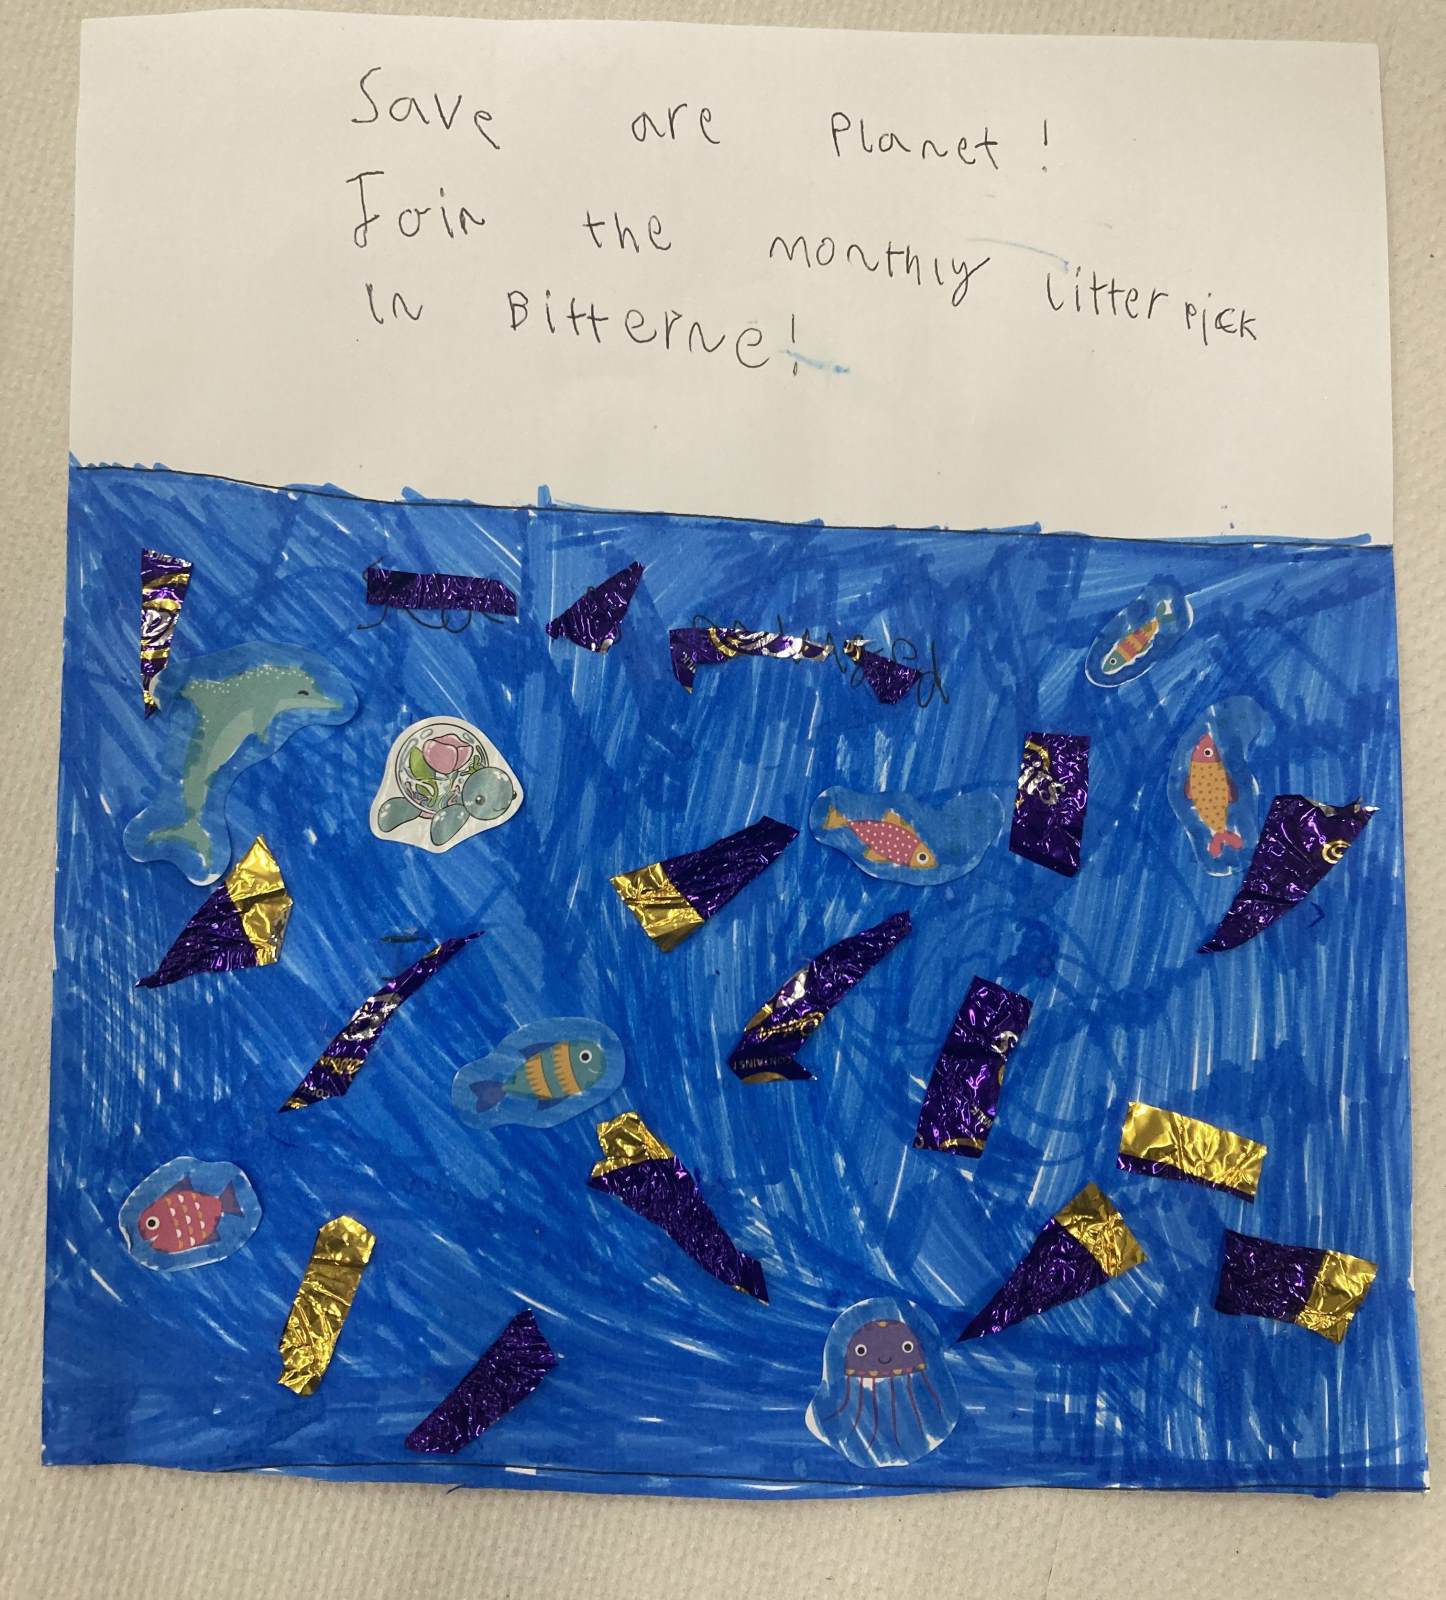 Save are Planet!
Join the monthly litter pick
in Bitterne!
CONTAINS